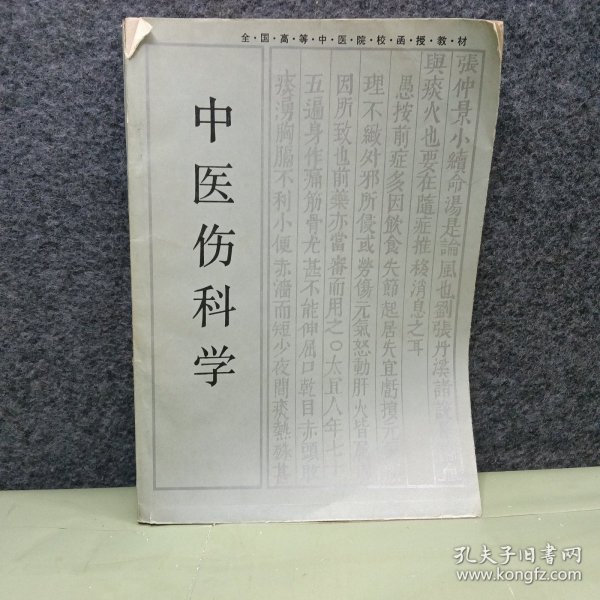 全·国·高·等·中·医·院·校·函·授·教·材
中医伤科学
張仲景小續命湯是論風也劉張丹溪諸
與痰火也要在隨症推移消息之耳
愚按前症多因飲食失節起居失宜虧損元
理不緻外邪所侵或勞傷元氣怒動肝火皆
因所致也前藥亦當審而用之〇太宜人年七十
五遍身作痛筋骨尤甚不能伸屈口乾目赤頭
痰湧胸膈不利小便赤濇而短少夜間痰熱殊甚
孔夫子旧书网
www.kongfz.com